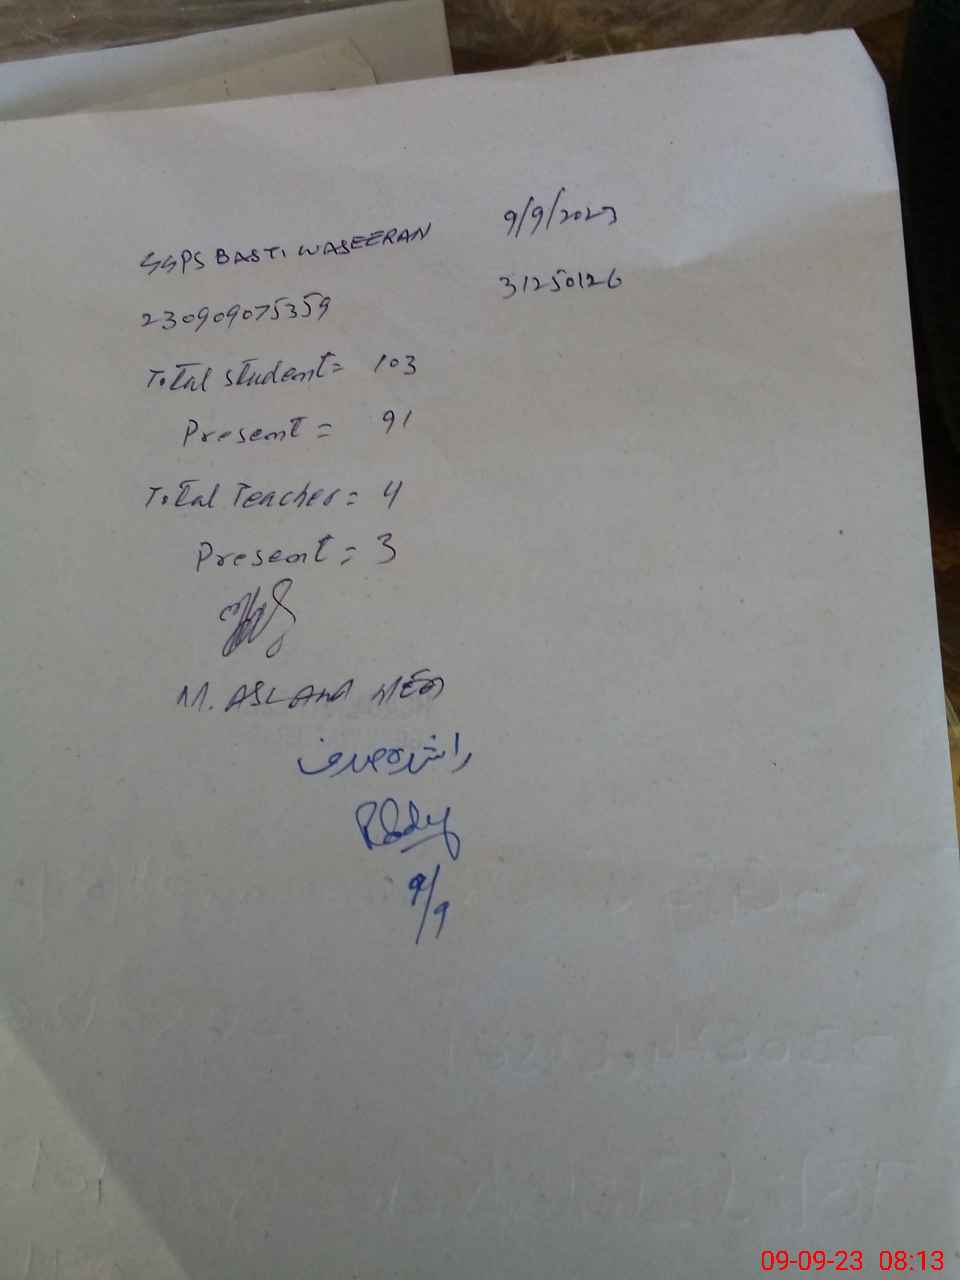 GGPS BASTI WASEERAN 9/9/2023
230909075359 31250126
Total student= 103
Present = 91
Total Teacher = 4
Present = 3
M. ASLAM
9/9
09-09-23 08:13